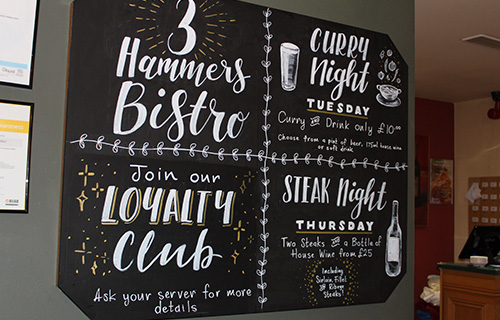 3
Hammers
Bistro
CURRY
Night
TUESDAY
Curry and Drink only £10.00
Choose from a pint of beer, 175ml house wine
or soft drink
Join our
LOYALTY
Club
Ask your server for more
details
STEAK Night
THURSDAY
Two Steaks and a Bottle of
House Wine from £25
Including
Sirloin, Fillet
and Ribeye
Steaks!